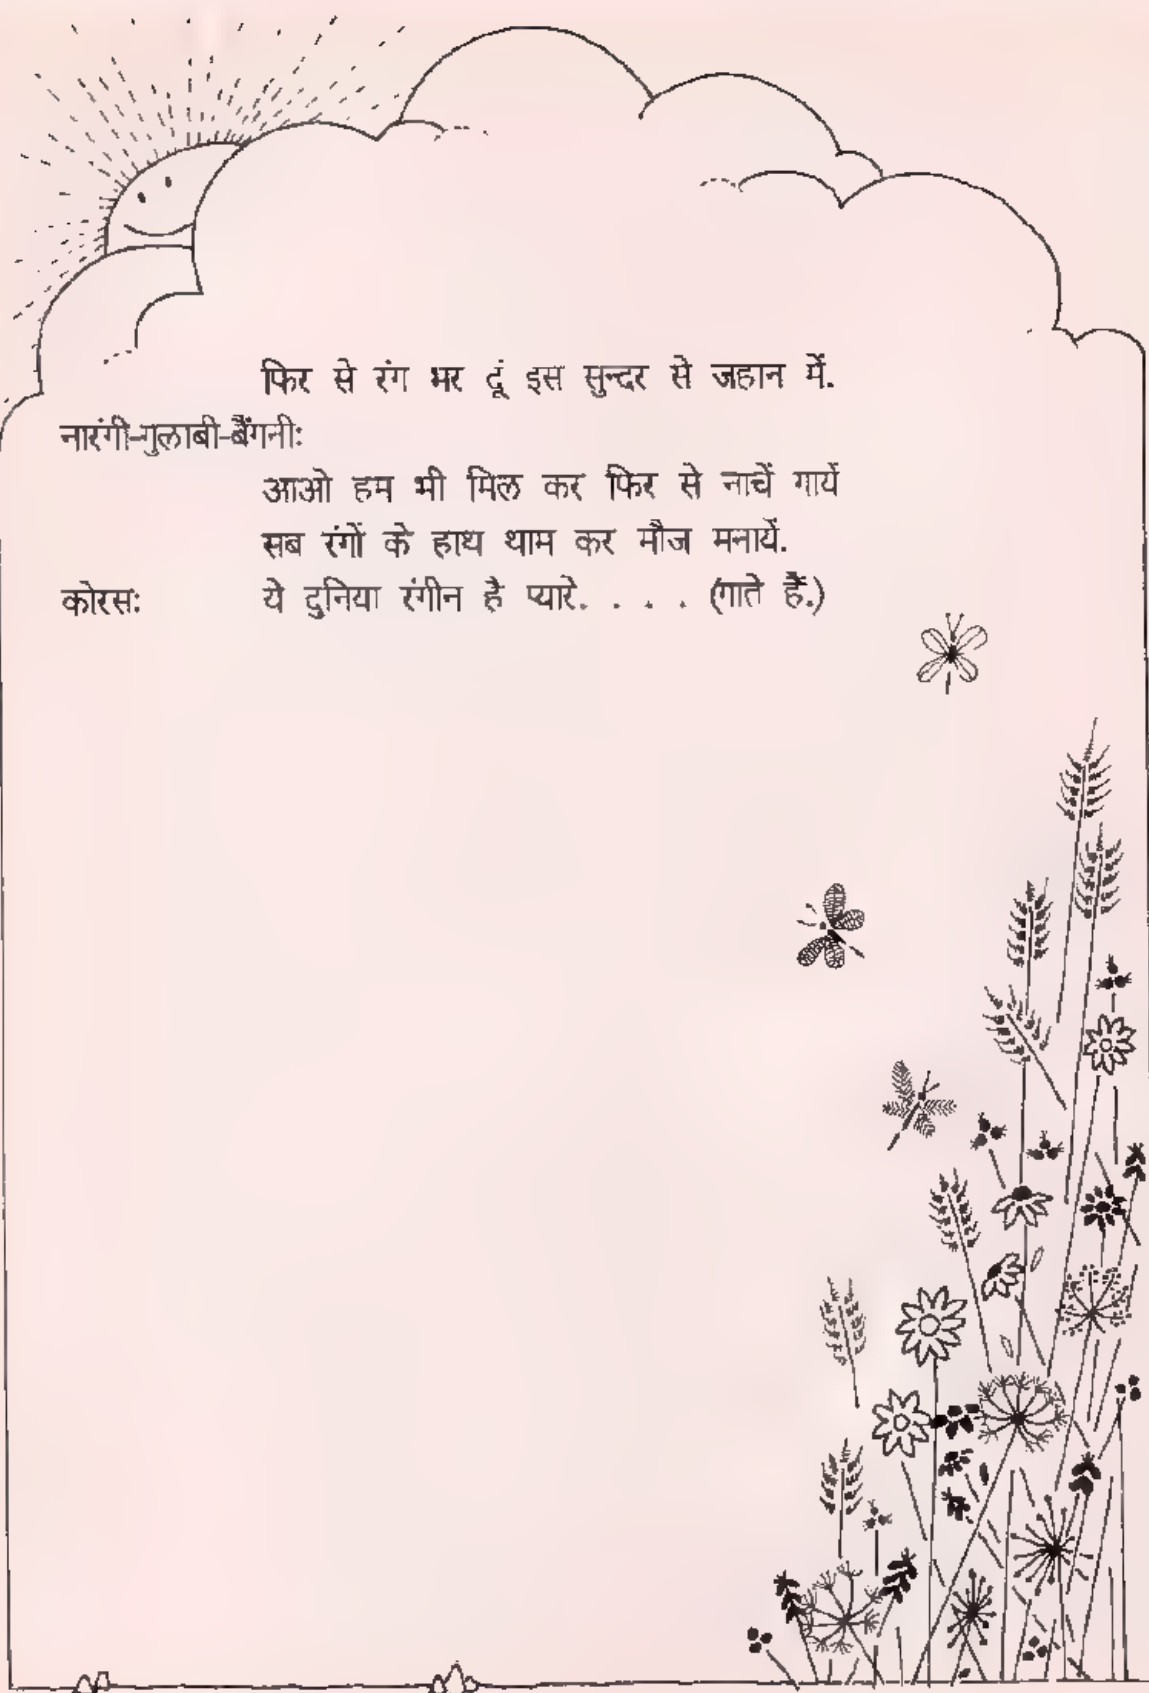 फिर से रंग भर दूं इस सुन्दर से जहान में.
नारंगी-गुलाबी-बैंगनीः
आओ हम भी मिल कर फिर से नाचें गायें
सब रंगों के हाथ थाम कर मौज मनायें.
कोरसः ये दुनिया रंगीन है प्यारे. . . . (गाते हैं.)